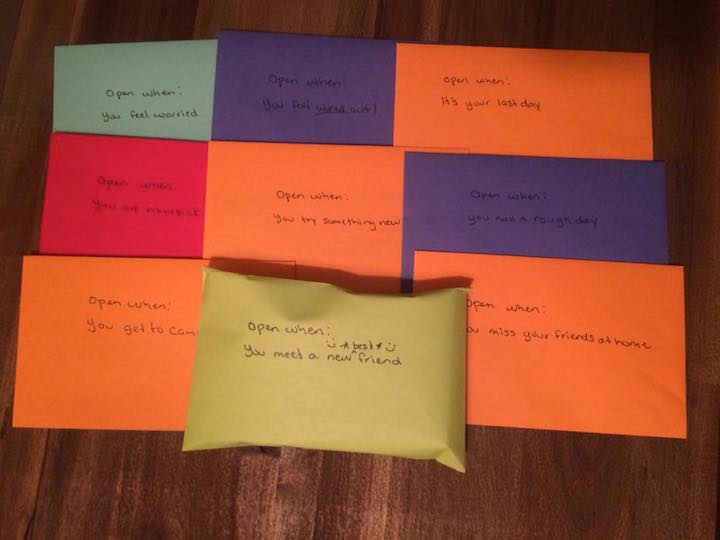 Open when:
you feel worried
Open when:
you feel
Open when:
It's your last day
Open when:
You are homesick
Open when:
You try something new
Open when:
you had a rough day
Open when:
You get to Cam
Open when:
☺ *best* ☺
You meet a new ^ friend
Open when:
you miss your friends at home